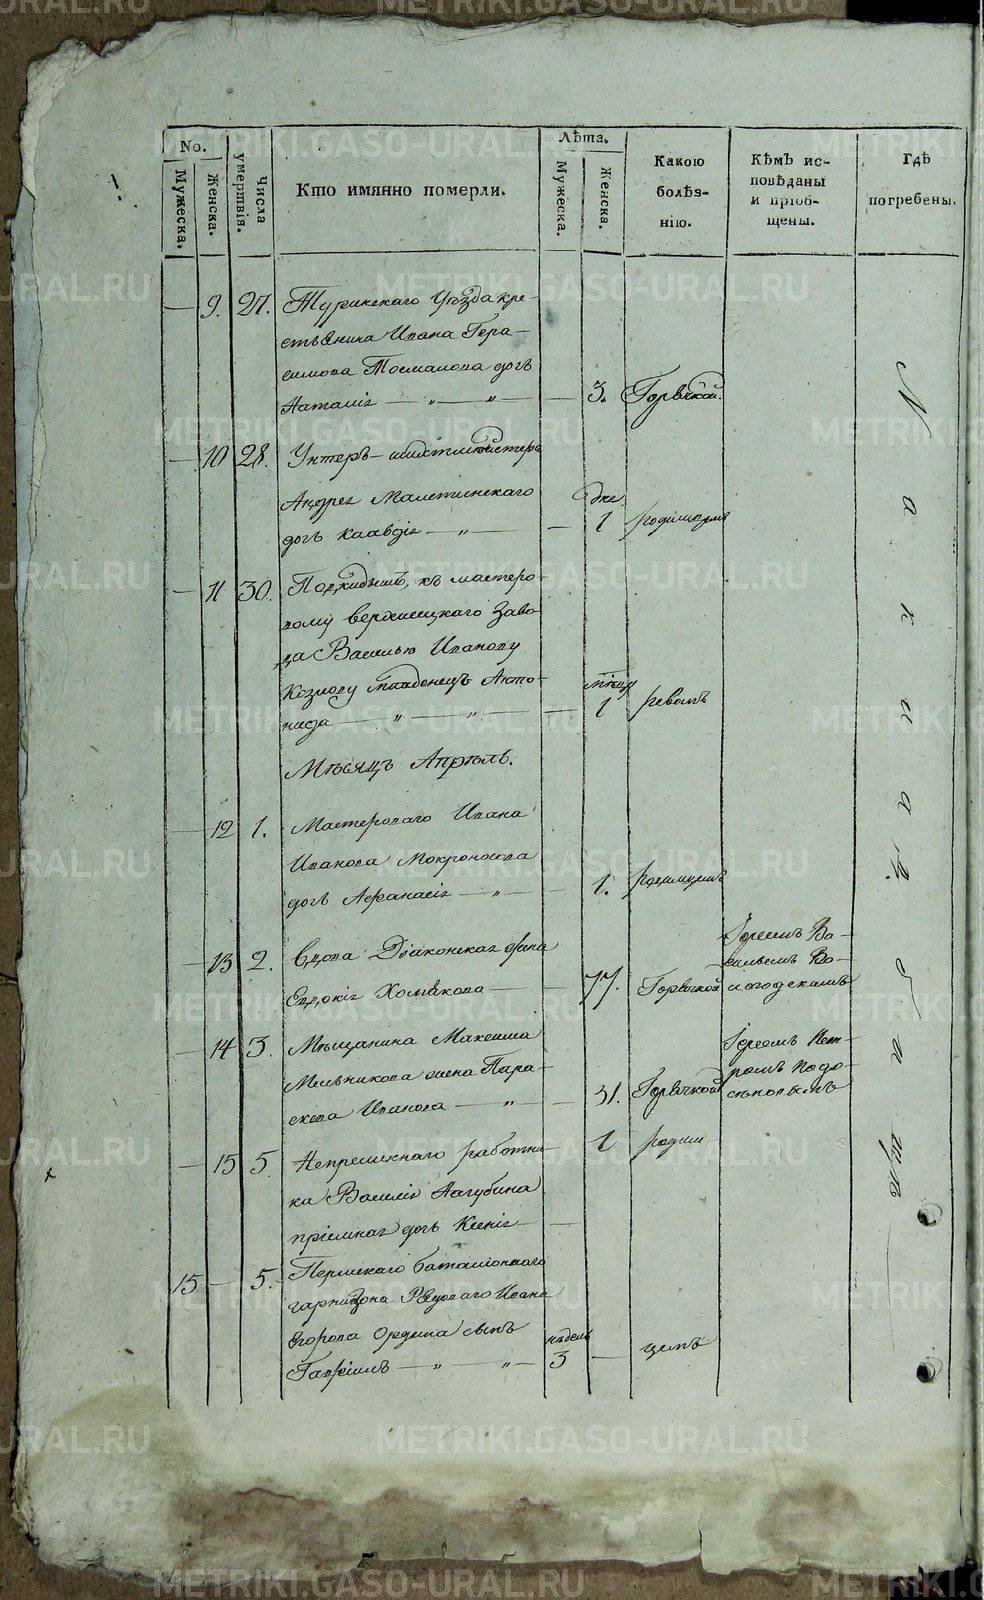 No.
Мужеска.
Женска.
Числа умертвія.
Кто имянно померли.
Лѣта.
Мужеска.
Женска.
Какою болѣз-
нію.
Кѣмъ ис-
повѣданы
и пріоб-
щены.
Гдѣ
погребены.
— 9. 27. Туринскаго Уѣзда кре-
стьянина Ивана Гера-
симова дочь
Наталія — „ — „ — — 3. Горячкой.
— 10 28. Унтеръ-шихтмейстера
Андрея
дочь Клавдія — „ — — дне. 1 родимцемъ
— 11 30. Подкидышъ, къ мастеро-
вому Верхисецкаго Заво-
да Василью Иванову
Козлову младенецъ Анто-
нида — „ — „ — — мѣсяц 1 ревомъ
Мѣсяцъ Апрѣль.
— 12 1. Мастероваго Ивана
Иванова Мокроносова
дочь Афанасія — „ — — 1. родимцемъ
— 13 2. Вдова Діаконская жена
Евдокія Хомякова — — 77. Горячкой
Іереемъ Ва-
сильемъ Во-
логодскимъ
— 14 3. Мѣщанина Максима
Мельникова жена Пара-
скева Иванова — „ — — 31. Горячкой
Іереомъ Пет-
ромъ
— 15 5. Непремѣннаго работни-
ка Василія Нагубина
пріемная дочь Ксенія — — 1 родим
15 — 5. Пермскаго баталіоннаго
гарнизона Рядоваго Ивана
Егорова сынъ
Гавріилъ — „ — „ — недель 3 —
На кладбищѣ
METRIKI.GASO-URAL.RU